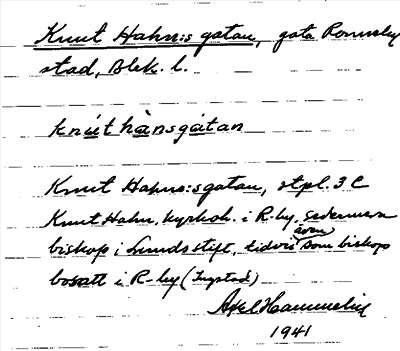 Knut Hahn:s gatan, gata Ronneby
stad, Blek. l.
knút hànsgátan
Knut Hahns:sgatan, stpl. 3 C
Knut Hahn, kyrkoh. i R-by, sedermera
biskop i Lunds stift, tidvis även som biskop
bosatt i R-by (Ingstad)
Axel Hammelin
1941